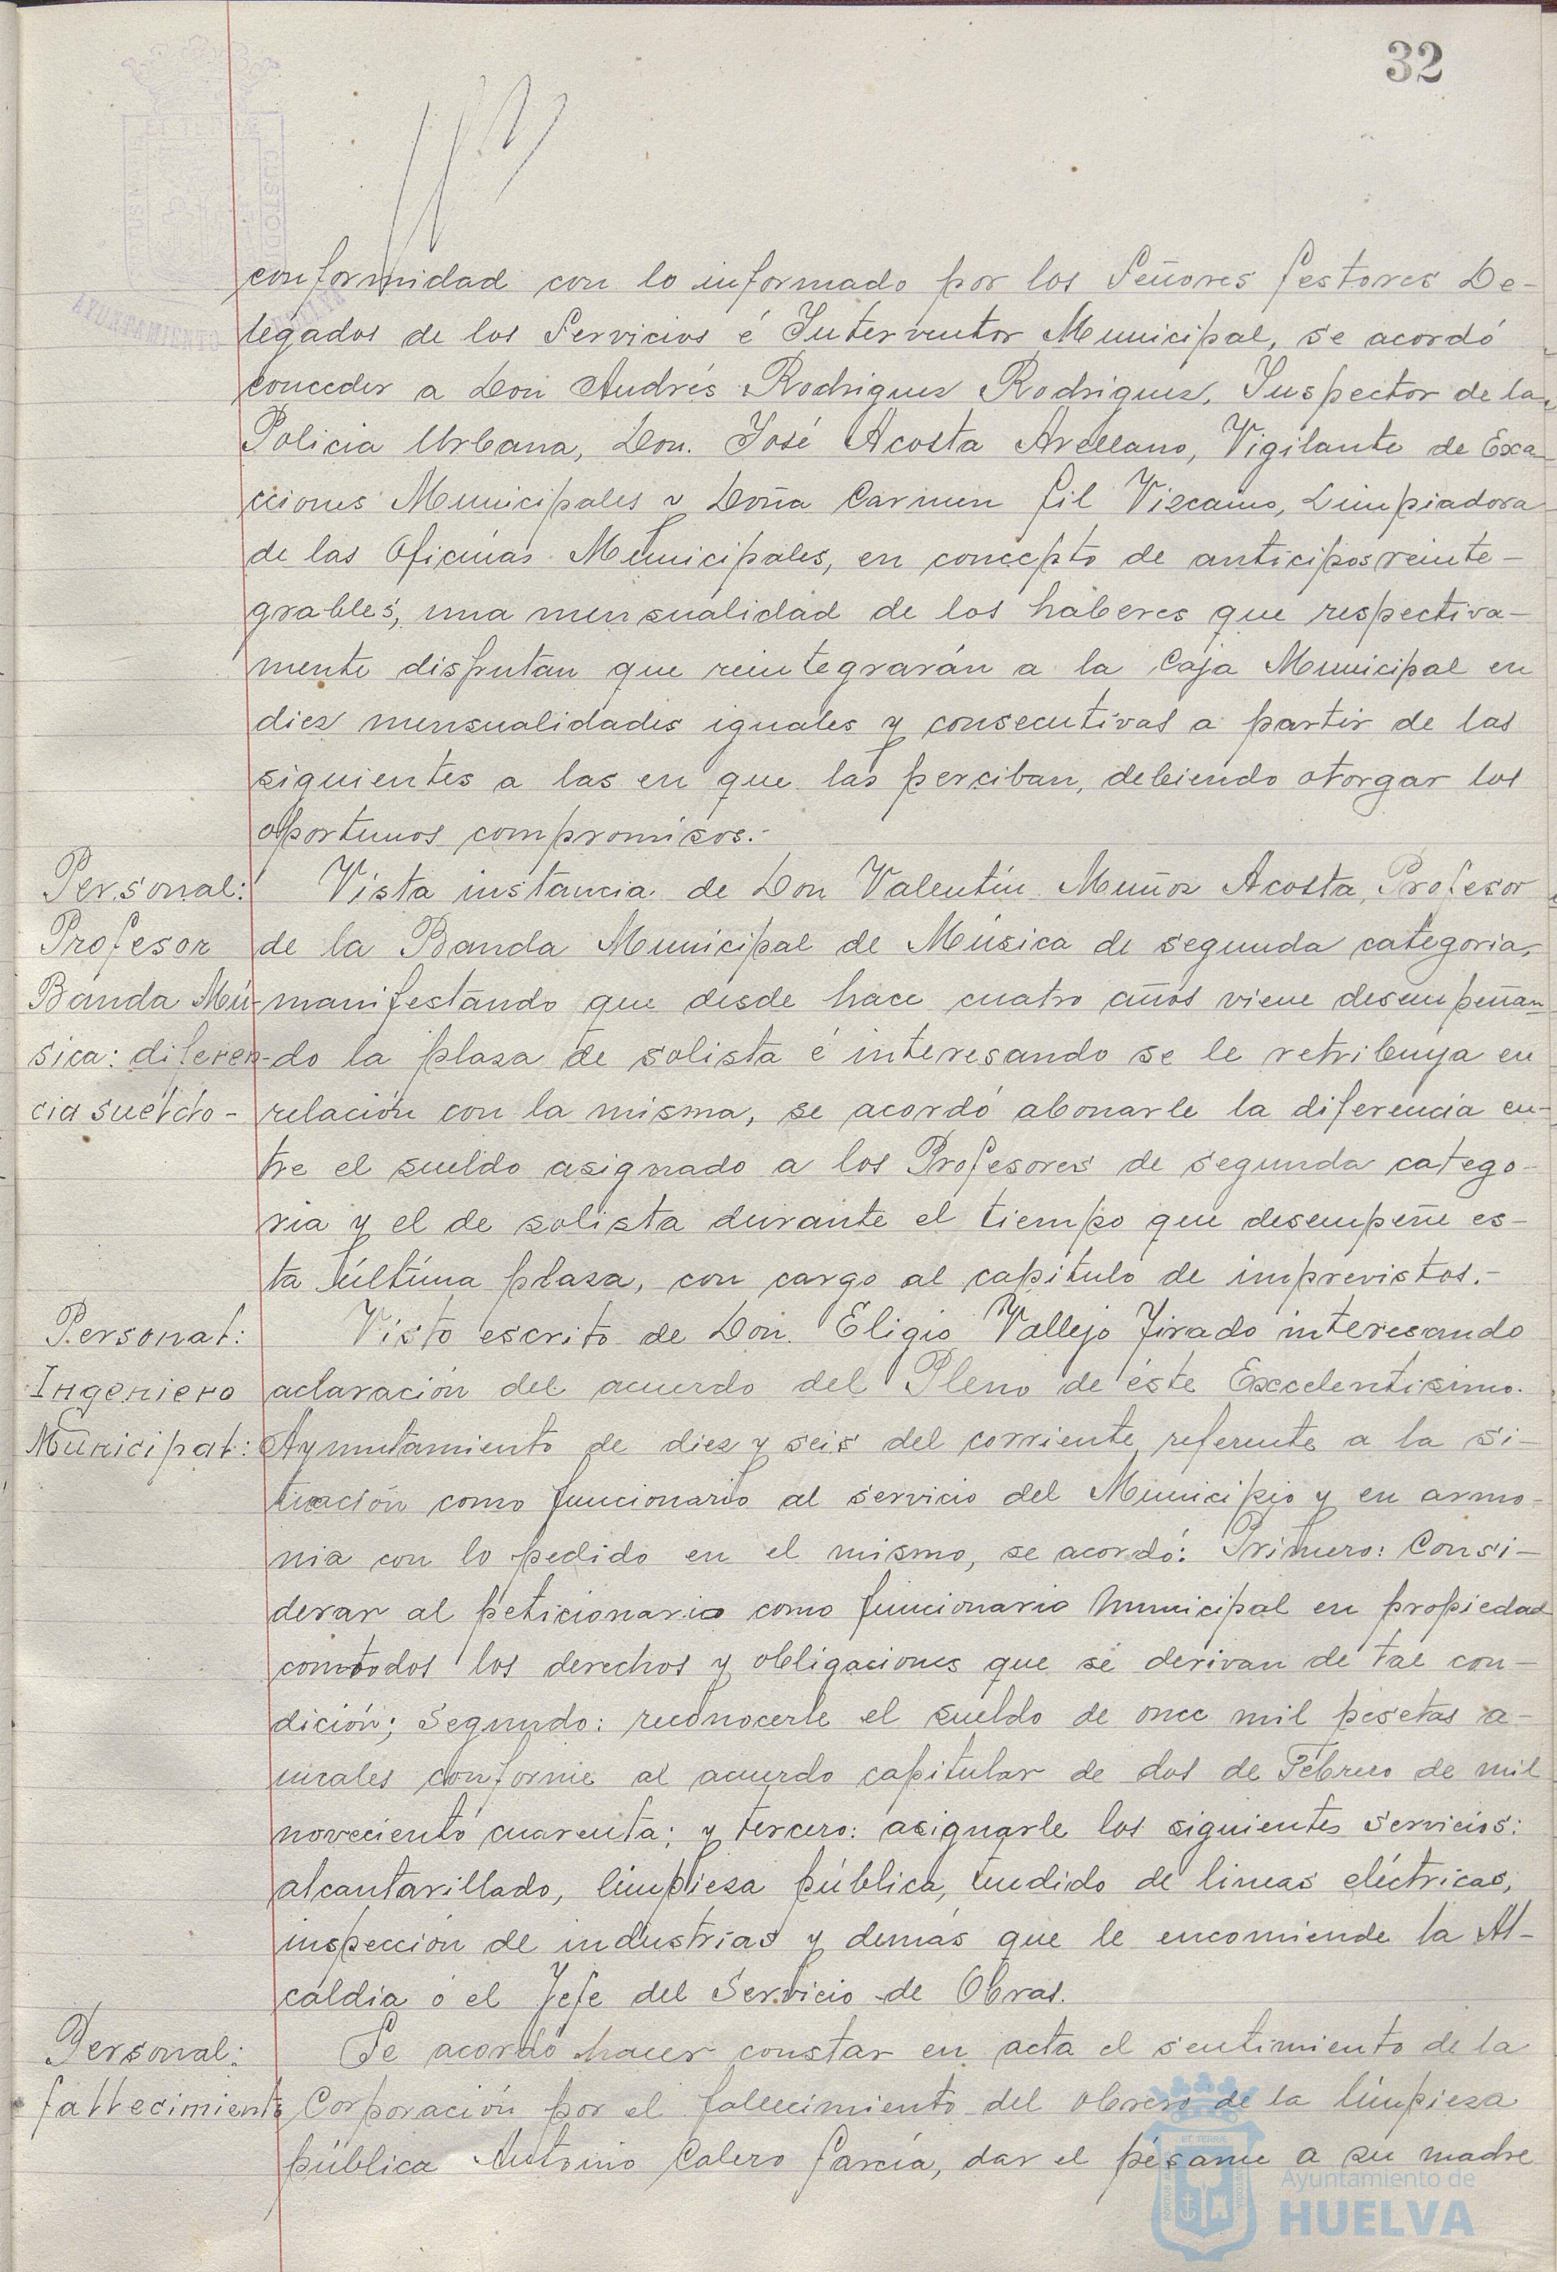 32
conformidad con lo informado por los Señores Gestores De-
legados de los Servicios é Interventor Municipal, se acordó
conceder a Don Andrés Rodriguez Rodriguez, Inspector de la
Policia Urbana, Don José Acosta Arellano, Vigilante de Exa-
cciones Municipales y Doña Carmen Gil Vizcaino, Limpiadora
de las Oficinas Municipales, en concepto de anticipos reinte-
grables, una mensualidad de los haberes que respectiva-
mente disfrutan que reintegrarán a la Caja Municipal en
diez mensualidades iguales y consecutivas a partir de las
siguientes a las en que las perciban, debiendo otorgar los
oportunos compromisos.-
Personal:
Profesor
Banda Mú-
sica: diferen-
cia sueldo-
Vista instancia de Don Valentín Muñoz Acosta, Profesor
de la Banda Municipal de Música de segunda categoria,
manifestando que desde hace cuatro años viene desempeñan-
do la plaza de solista é interesando se le retribuya en
relación con la misma, se acordó abonarle la diferencia en-
tre el sueldo asignado a los Profesores de segunda catego-
ria y el de solista durante el tiempo que desempeñe es-
ta última plaza, con cargo al capítulo de imprevistos.-
Personal:
Ingeniero
Municipal:
Visto escrito de Don Eligio Vallejo Jirado interesando
aclaración del acuerdo del Pleno de éste Excelentisimo.
Ayuntamiento de diez y seis del corriente, referente a la si-
tuación como funcionario al servicio del Municipio y en armo-
nia con lo pedido en el mismo, se acordó: Primero: Consi-
derar al peticionario como funcionario Municipal en propiedad
con todos los derechos y obligaciones que sé derivan de tal con-
dición; Segundo: reconocerle el sueldo de once mil pesetas a-
nuales conforme al acuerdo capitular de dos de Febrero de mil
noveciento cuarenta; y tercero: asignarle los siguientes servicios:
alcantarillado, limpieza pública, tendido de lineas eléctricas,
inspección de industrias y demás que le encomiende la Al-
caldia o el Jefe del Servicio de Obras.
Personal:
fallecimiento
Se acordó hacer constar en acta el sentimiento de la
Corporación por el fallecimiento del obrero de la limpieza
pública Antonio Calero García, dar el pésame a su madre
Ayuntamiento de
HUELVA